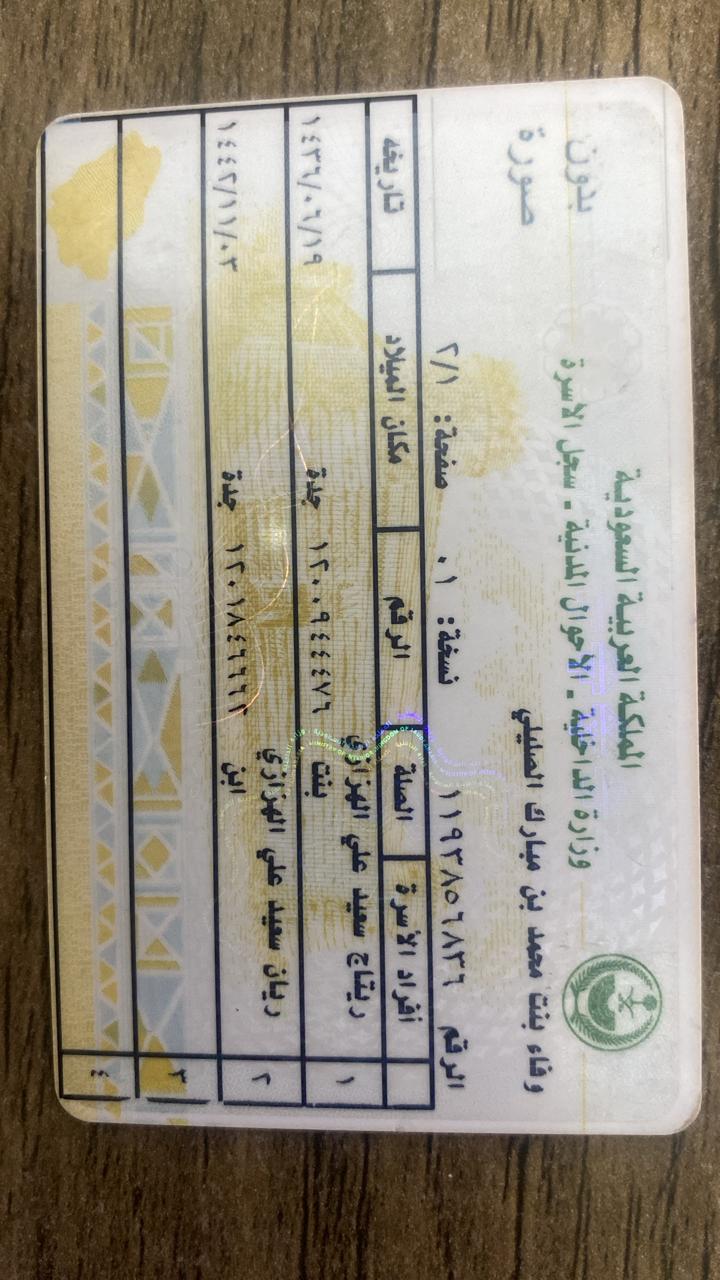 المملكة العربية السعودية
وزارة الداخلية - الأحوال المدنية - سجل الأسرة
بدون
صورة
وفاء بنت محمد بن مبارك الصليلي
الرقم ١١٩٣٨٥٦٨٣٦ نسخة: ٠١ صفحة: ٢/١
أفراد الأسرة الصلة الرقم مكان الميلاد تاريخه
١ ريتاج سعيد علي الهزازي بنت ١٢٠٠٩٤٤٤٧٦ جدة ١٤٣٦/٠٦/١٩
٢ ريان سعيد علي الهزازي ابن ١٢٠١٨٤٦٦٦٦ جدة ١٤٤٢/١١/٠٢
٣
٤